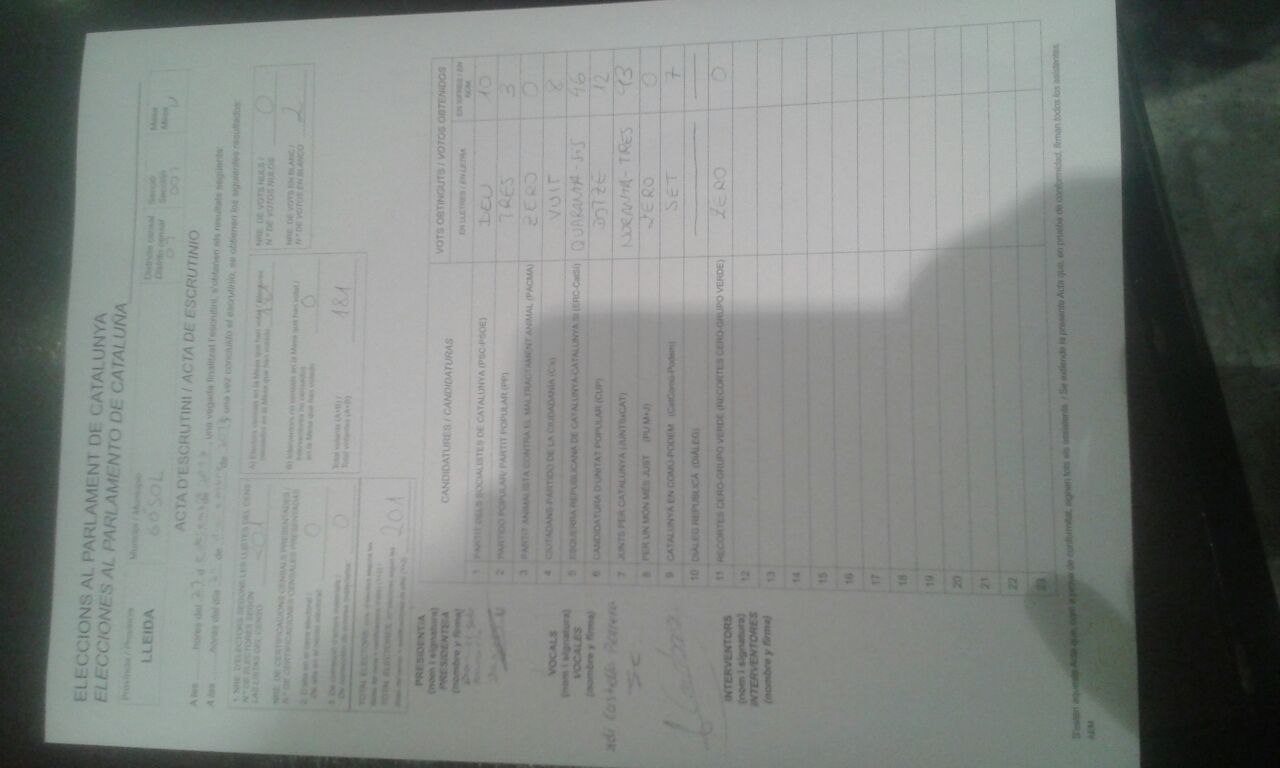 ELECCIONS AL PARLAMENT DE CATALUNYA
ELECCIONES AL PARLAMENTO DE CATALUÑA
Província / Provincia
LLEIDA
Municipi / Municipio
GÓSOL
Districte censal
Distrito censal
01
Secció
Sección
001
Mesa
Mesa
U
ACTA D'ESCRUTINI / ACTA DE ESCRUTINIO
A les hores del , una vegada finalitzat l'escrutini, s'obtenen els resultats següents:
A las horas del día 21 de de una vez concluido el escrutinio, se obtienen los siguientes resultados:
1. NRE. D'ELECTORS SEGONS LES LLISTES DEL CENS /
N.º DE ELECTORES SEGÚN
LAS LISTAS DEL CENSO
201
NRE. DE CERTIFICACIONS CENSALS PRESENTADES /
N.º DE CERTIFICACIONES CENSALES PRESENTADAS
0
0
TOTAL ELECTORS
TOTAL ELECTORES
201
A) Electors censats en la Mesa que han votat / Electores
censados en la Mesa que han votado
181
B) Interventors no censats en la Mesa que han votat /
Interventores no censados
en la Mesa que han votado
0
Total votants (A+B) /
Total votantes (A+B)
181
NRE. DE VOTS NULS /
N.º DE VOTOS NULOS
0
NRE. DE VOTS EN BLANC /
N.º DE VOTOS EN BLANCO
2
CANDIDATURES / CANDIDATURAS
VOTS OBTINGUTS / VOTOS OBTENIDOS
EN LLETRES / EN LETRA
EN XIFRES / EN NÚM.
1 PARTIT DELS SOCIALISTES DE CATALUNYA (PSC-PSOE) DEU 10
2 PARTIDO POPULAR/ PARTIT POPULAR (PP) TRES 3
3 PARTIT ANIMALISTA CONTRA EL MALTRACTAMENT ANIMAL (PACMA) ZERO 0
4 CIUTADANS-PARTIDO DE LA CIUDADANÍA (C's) VUIT 8
5 ESQUERRA REPUBLICANA DE CATALUNYA-CATALUNYA SÍ (ERC-CatSÍ) QUARANTA-SIS 46
6 CANDIDATURA D'UNITAT POPULAR (CUP) DOTZE 12
7 JUNTS PER CATALUNYA (JUNTSxCAT) NORANTA-TRES 93
8 PER UN MÓN MÉS JUST (PUM+J) ZERO 0
9 CATALUNYA EN COMÚ-PODEM (CatComú-Podem) SET 7
10 DIÀLEG REPUBLICÀ (DIÀLEG)
11 RECORTES CERO-GRUPO VERDE (RECORTES CERO-GRUPO VERDE) ZERO 0
12
13
14
15
16
17
18
19
20
21
22
23
PRESIDENT/A
(nom i signatura)
PRESIDENTE/A
(nombre y firma)
VOCALS
(nom i signatura)
VOCALES
(nombre y firma)
INTERVENTORS
(nom i signatura)
INTERVENTORES
(nombre y firma)
S'estén aquesta Acta que, com a prova de conformitat, signen tots els assistents. / Se extiende la presente Acta que, en prueba de conformidad, firman todos los asistentes.